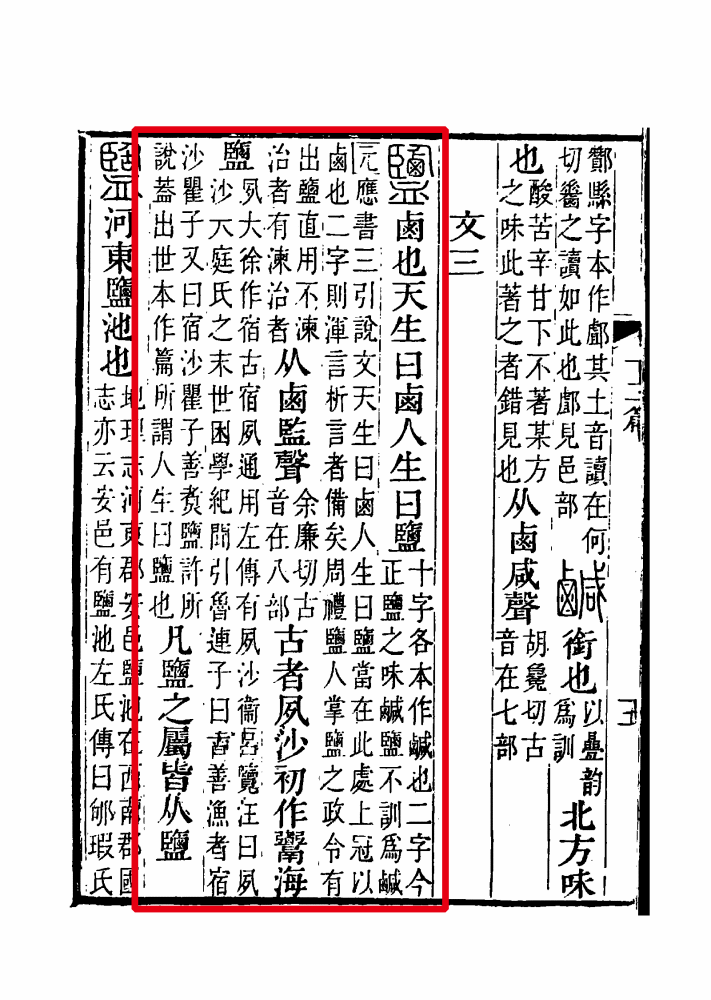 酇縣字本作䣜其土音讀在何
切酇之讀如此也䣜見邑部
鹹銜也
以疊韵
爲訓
北方味
也
酸苦辛甘下不著某方
之味此著之者錯見也
从鹵咸聲
胡毚切古
音在七部
文三
鹽鹵也天生曰鹵人生曰鹽
十字各本作鹹也二字今
正鹽之味鹹鹽不訓爲鹹
元應書三引說文天生曰鹵人生曰鹽當在此處上冠以
鹵也二字則渾言析言者備矣周禮鹽人掌鹽之政令有
出鹽直用不湅
治者有湅治者
从鹵監聲
余廉切古
音在八部
古者夙沙初作鬻海
鹽
夙大徐作宿古宿夙通用左傳有夙沙衞呂覽注曰夙
沙大庭氏之末世困學紀聞引魯連子曰古善漁者宿
沙瞿子又曰宿沙瞿子善煑鹽許所
說葢出世本作篇所謂人生曰鹽也
凡鹽之屬皆从鹽
盬河東鹽池也
地理志河東郡安邑鹽池在西南郡國
志亦云安邑有鹽池左氏傳曰郇瑕氏